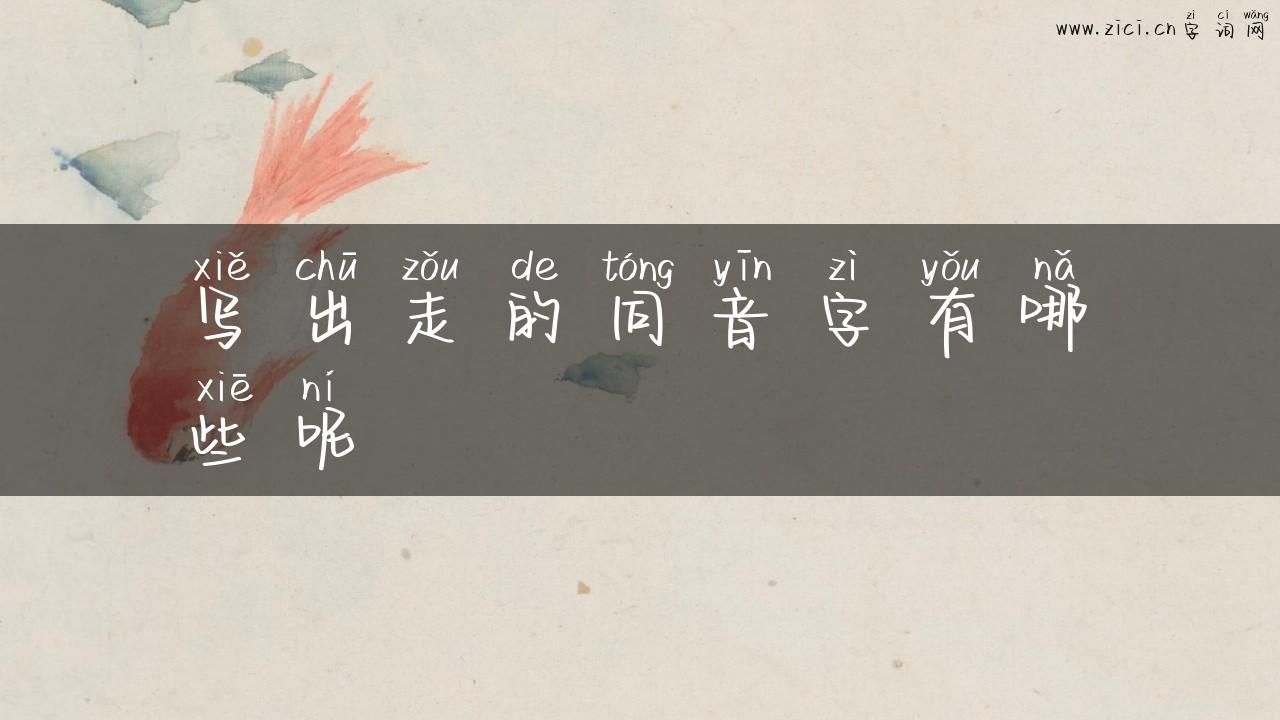 zì cí wǎng
www.zici.cn 字 词 网
xiě chū zǒu de tóng yīn zì yǒu nǎ
写 出 走 的 同 音 字 有 哪
xiē ní
些 呢